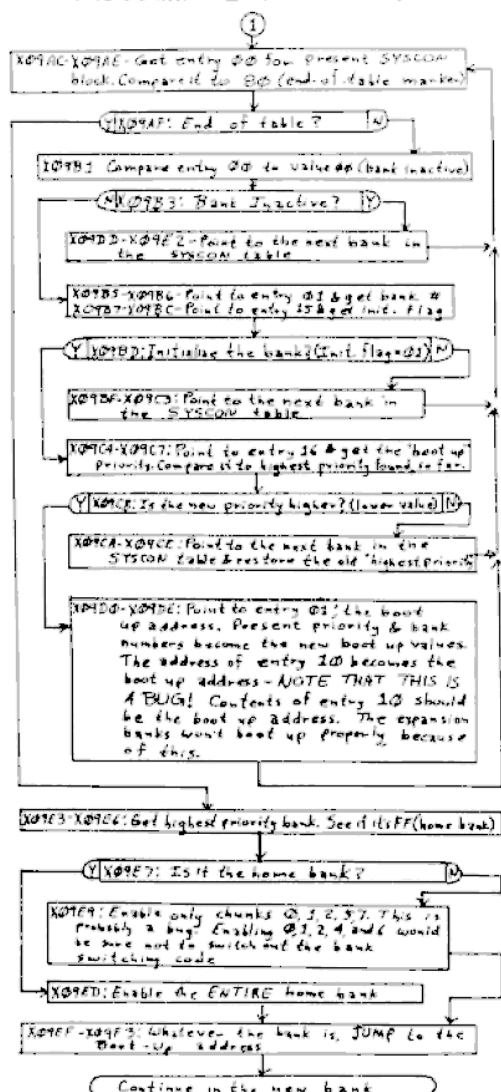 1
X09AC-X09AE - Get entry 00 for present SYSCON
block. Compare it to 80 (end-of-table marker)
Y X09AF: End of table? N
X09B1 Compare entry 00 to value 00 (bank inactive)
N X09B3: Bank Inactive? Y
X09DD-X09E2 - Point to the next bank in
the SYSCON table
X09B5-X09B6 - Point to entry 01 & get bank #
X09B7-X09BC - Point to entry 15 & get init. flag
Y X09BD: Initialize the bank? (Init. flag=01) N
X09BF-X09C3: Point to the next bank in
the SYSCON table
X09C4-X09C7: Point to entry 16 & get the "boot up"
priority. Compare it to highest priority found so far.
Y X09C8: Is the new priority higher? (lower value) N
X09CA-X09CE: Point to the next bank in the
SYSCON table & restore the old "highest priority"
X09D0-X09DC: Point to entry 01, the boot
up address. Present priority & bank
numbers become the new boot up values.
The address of entry 10 becomes the
boot up address - NOTE THAT THIS IS
A BUG! Contents of entry 10 should
be the boot up address. The expansion
banks won't boot up properly because
of this.
X09E3-X09E6: Get highest priority bank. See if its FF (home bank)
Y X09E7: Is it the home bank? N
X09E9: Enable only chunks 0,1,2,3,7. This is
probably a bug. Enabling 0,1,2,4, and 6 would
be sure not to switch out the bank
switching code
X09ED: Enable the ENTIRE home bank
X09EF-X09F3: Whatever the bank is, JUMP to the
Boot-Up address
Continue in the new bank